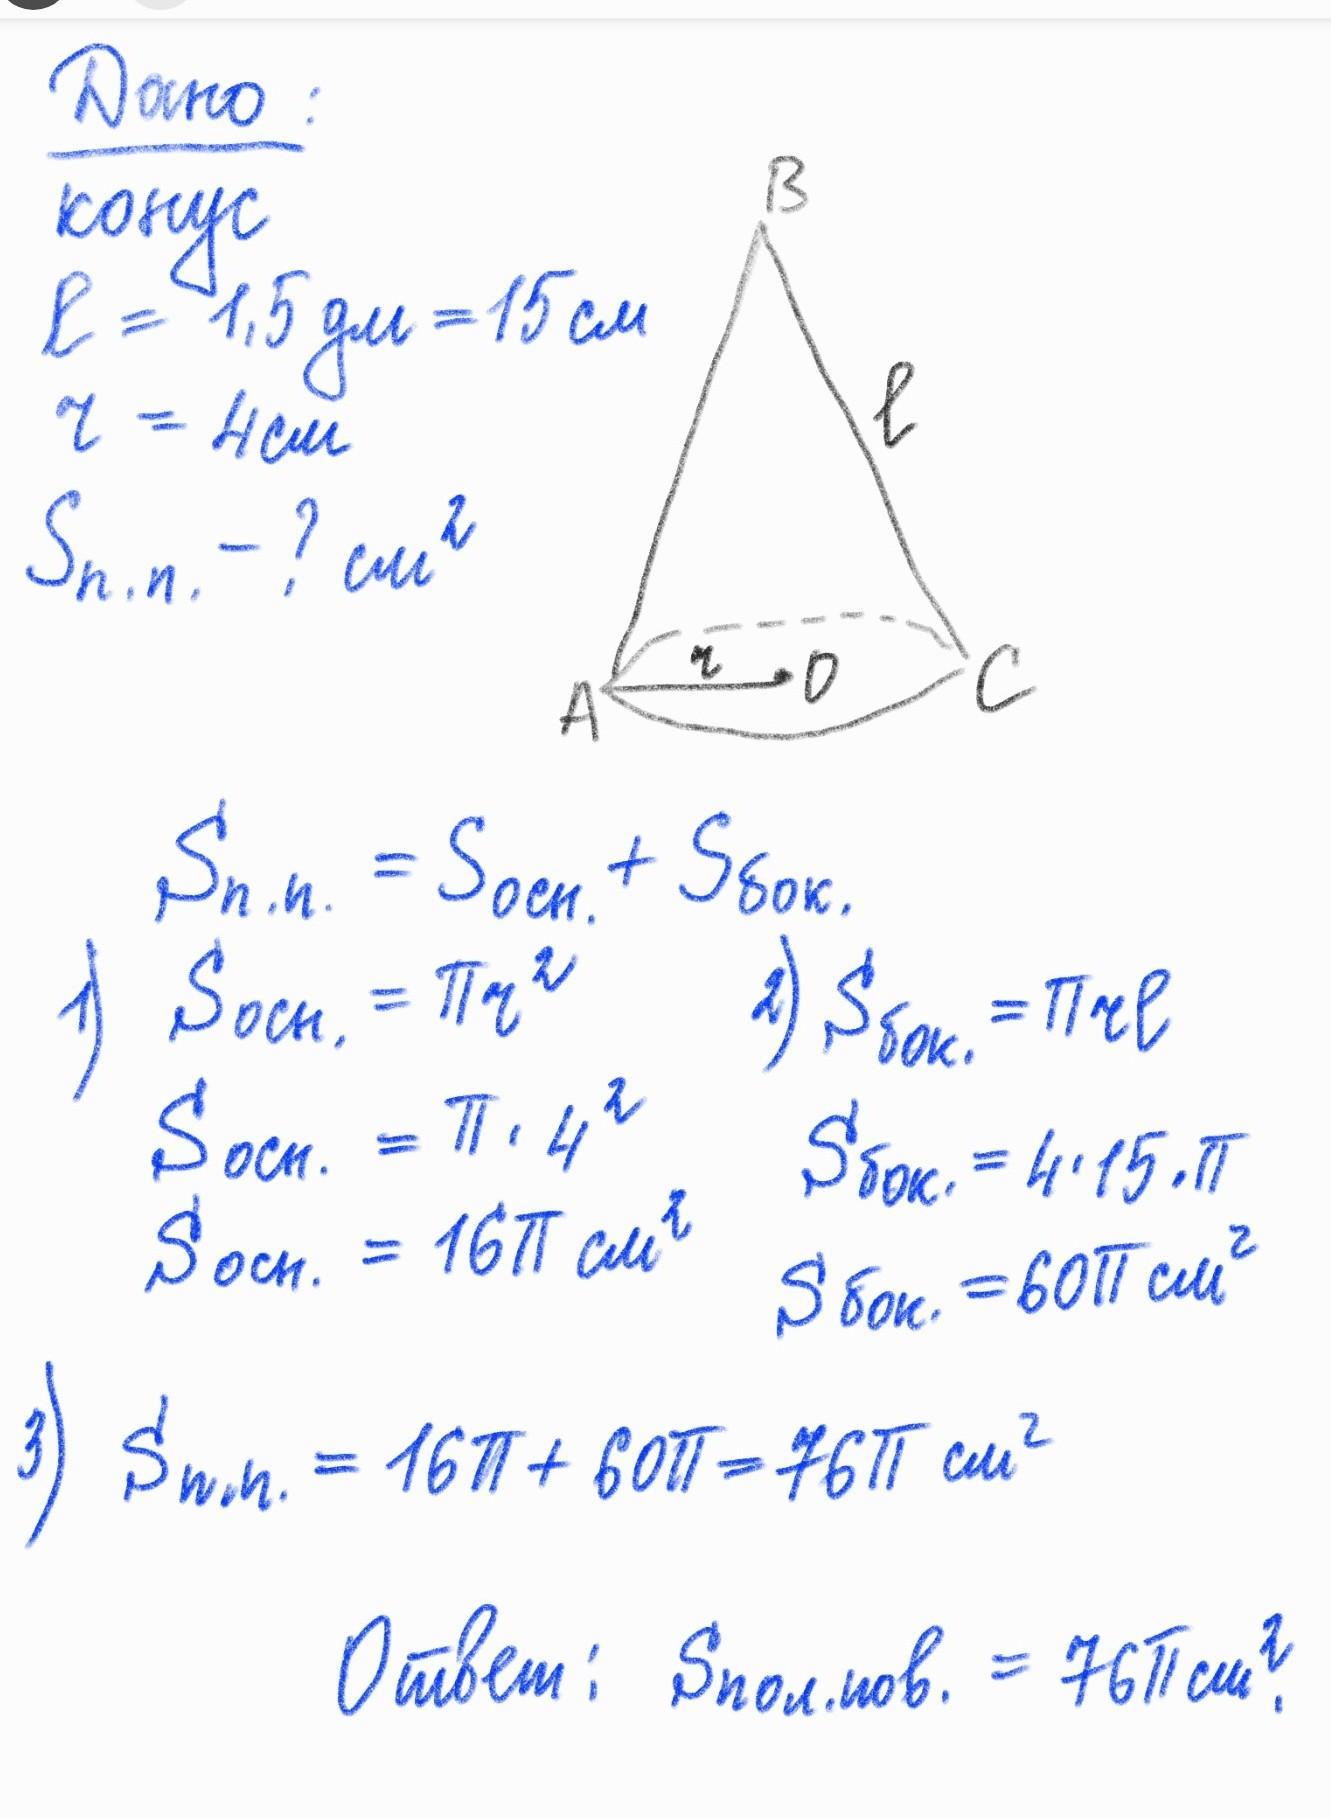 Дано:
конус
l = 1,5 дм = 15 см
r = 4 см
Sп.п. - ? см²
B
l
r
O
A
C
Sп.п. = Sосн. + Sбок.
1) Sосн. = πr²
Sосн. = π · 4²
Sосн. = 16π см²
2) Sбок. = πrl
Sбок. = 4 · 15 · π
Sбок. = 60π см²
3) Sп.п. = 16π + 60π = 76π см²
Ответ: Sпол.пов. = 76π см².